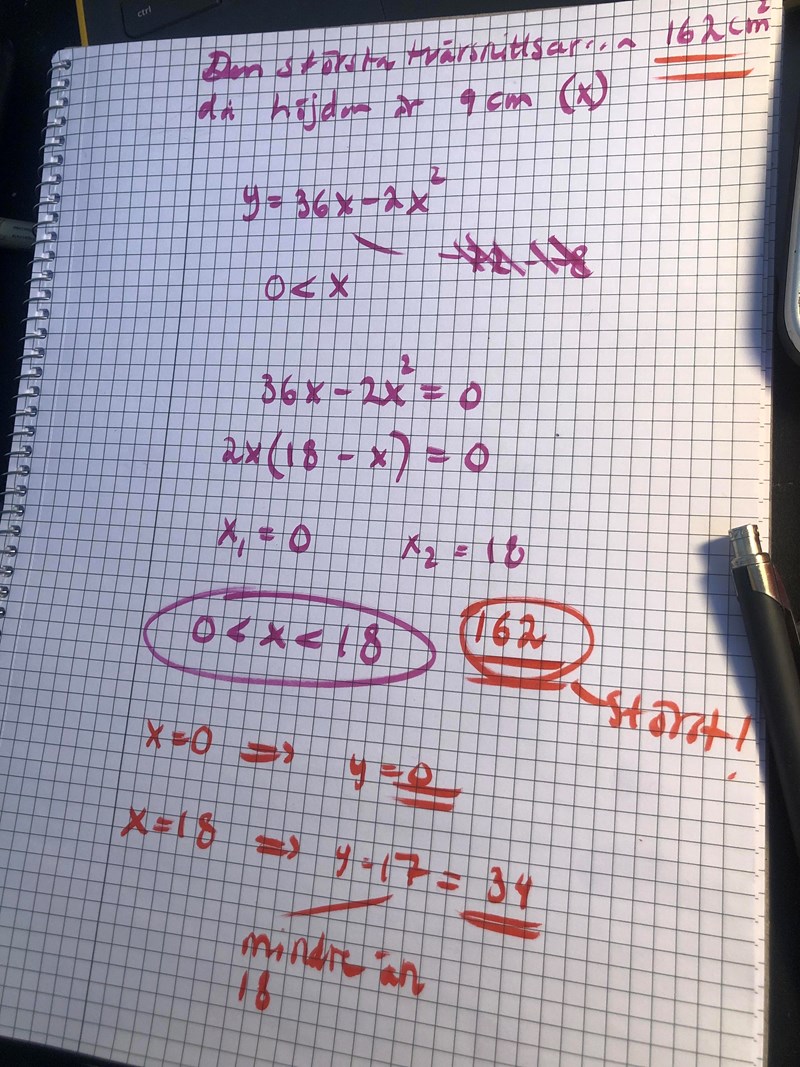 ctrl
Den största tvärsnittsar...n 162 cm²
då höjden är 9 cm (x)
y = 36x - 2x²
0 < x
36x - 2x² = 0
2x(18 - x) = 0
x₁ = 0 x₂ = 18
0 < x < 18 162
störst!
x=0 ⇒ y = 0
x=18 ⇒ y=17 = 34
mindre än
18